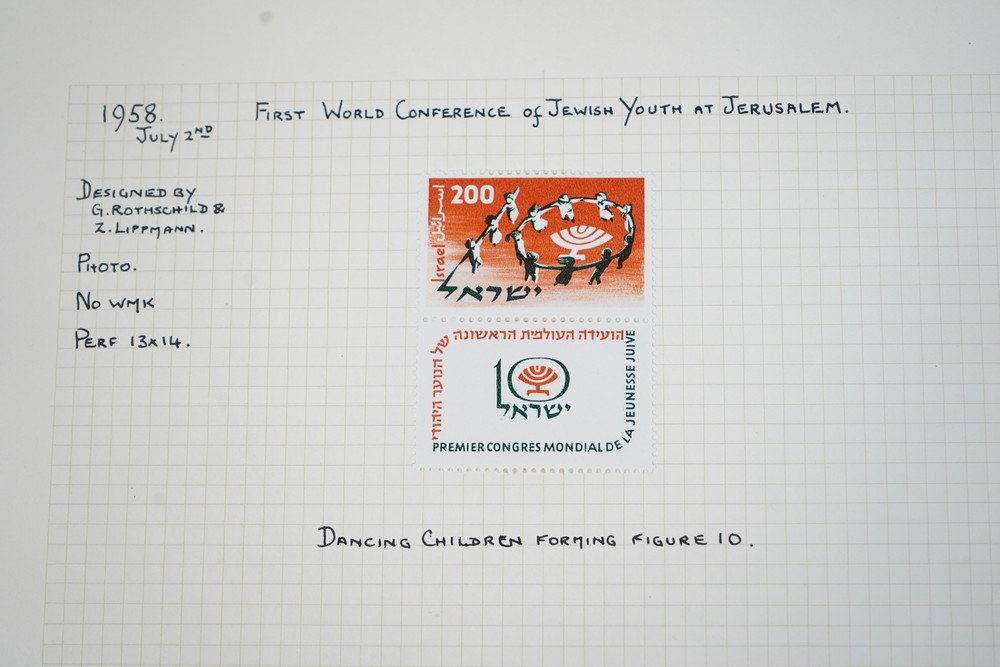 1958.
JULY 2ND
FIRST WORLD CONFERENCE of JEWISH YOUTH AT JERUSALEM.
DESIGNED BY
G. ROTHSCHILD &
Z. LIPPMANN.
PHOTO.
NO WMK
PERF 13x14.
200
اسرائيل
Israel
ישראל
הועידה העולמית הראשונה
של הנוער היהודי
10
ישראל
PREMIER CONGRÈS MONDIAL DE LA JEUNESSE JUIVE
DANCING CHILDREN FORMING FIGURE 10.